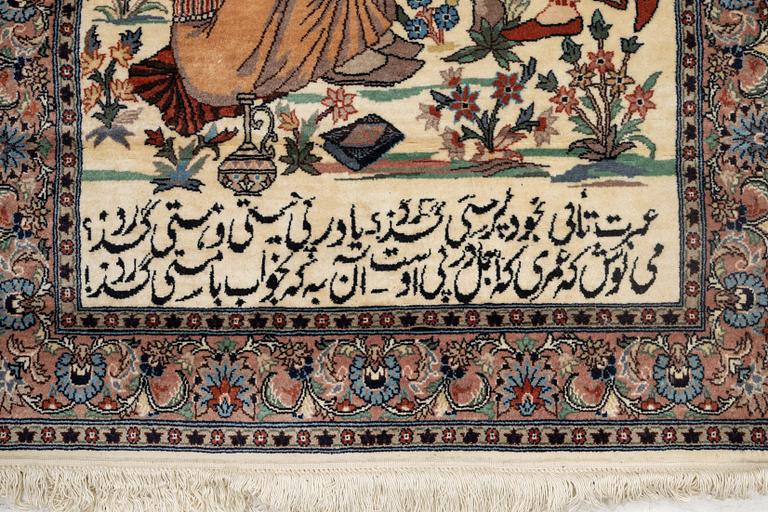 عمرت تا کی بخود پرستی گذرد یا در پی نیستی و هستی گذرد؟
می نوش که عمری که اجل در پی اوست ـ آن به که بخواب یا مستی گذرد!